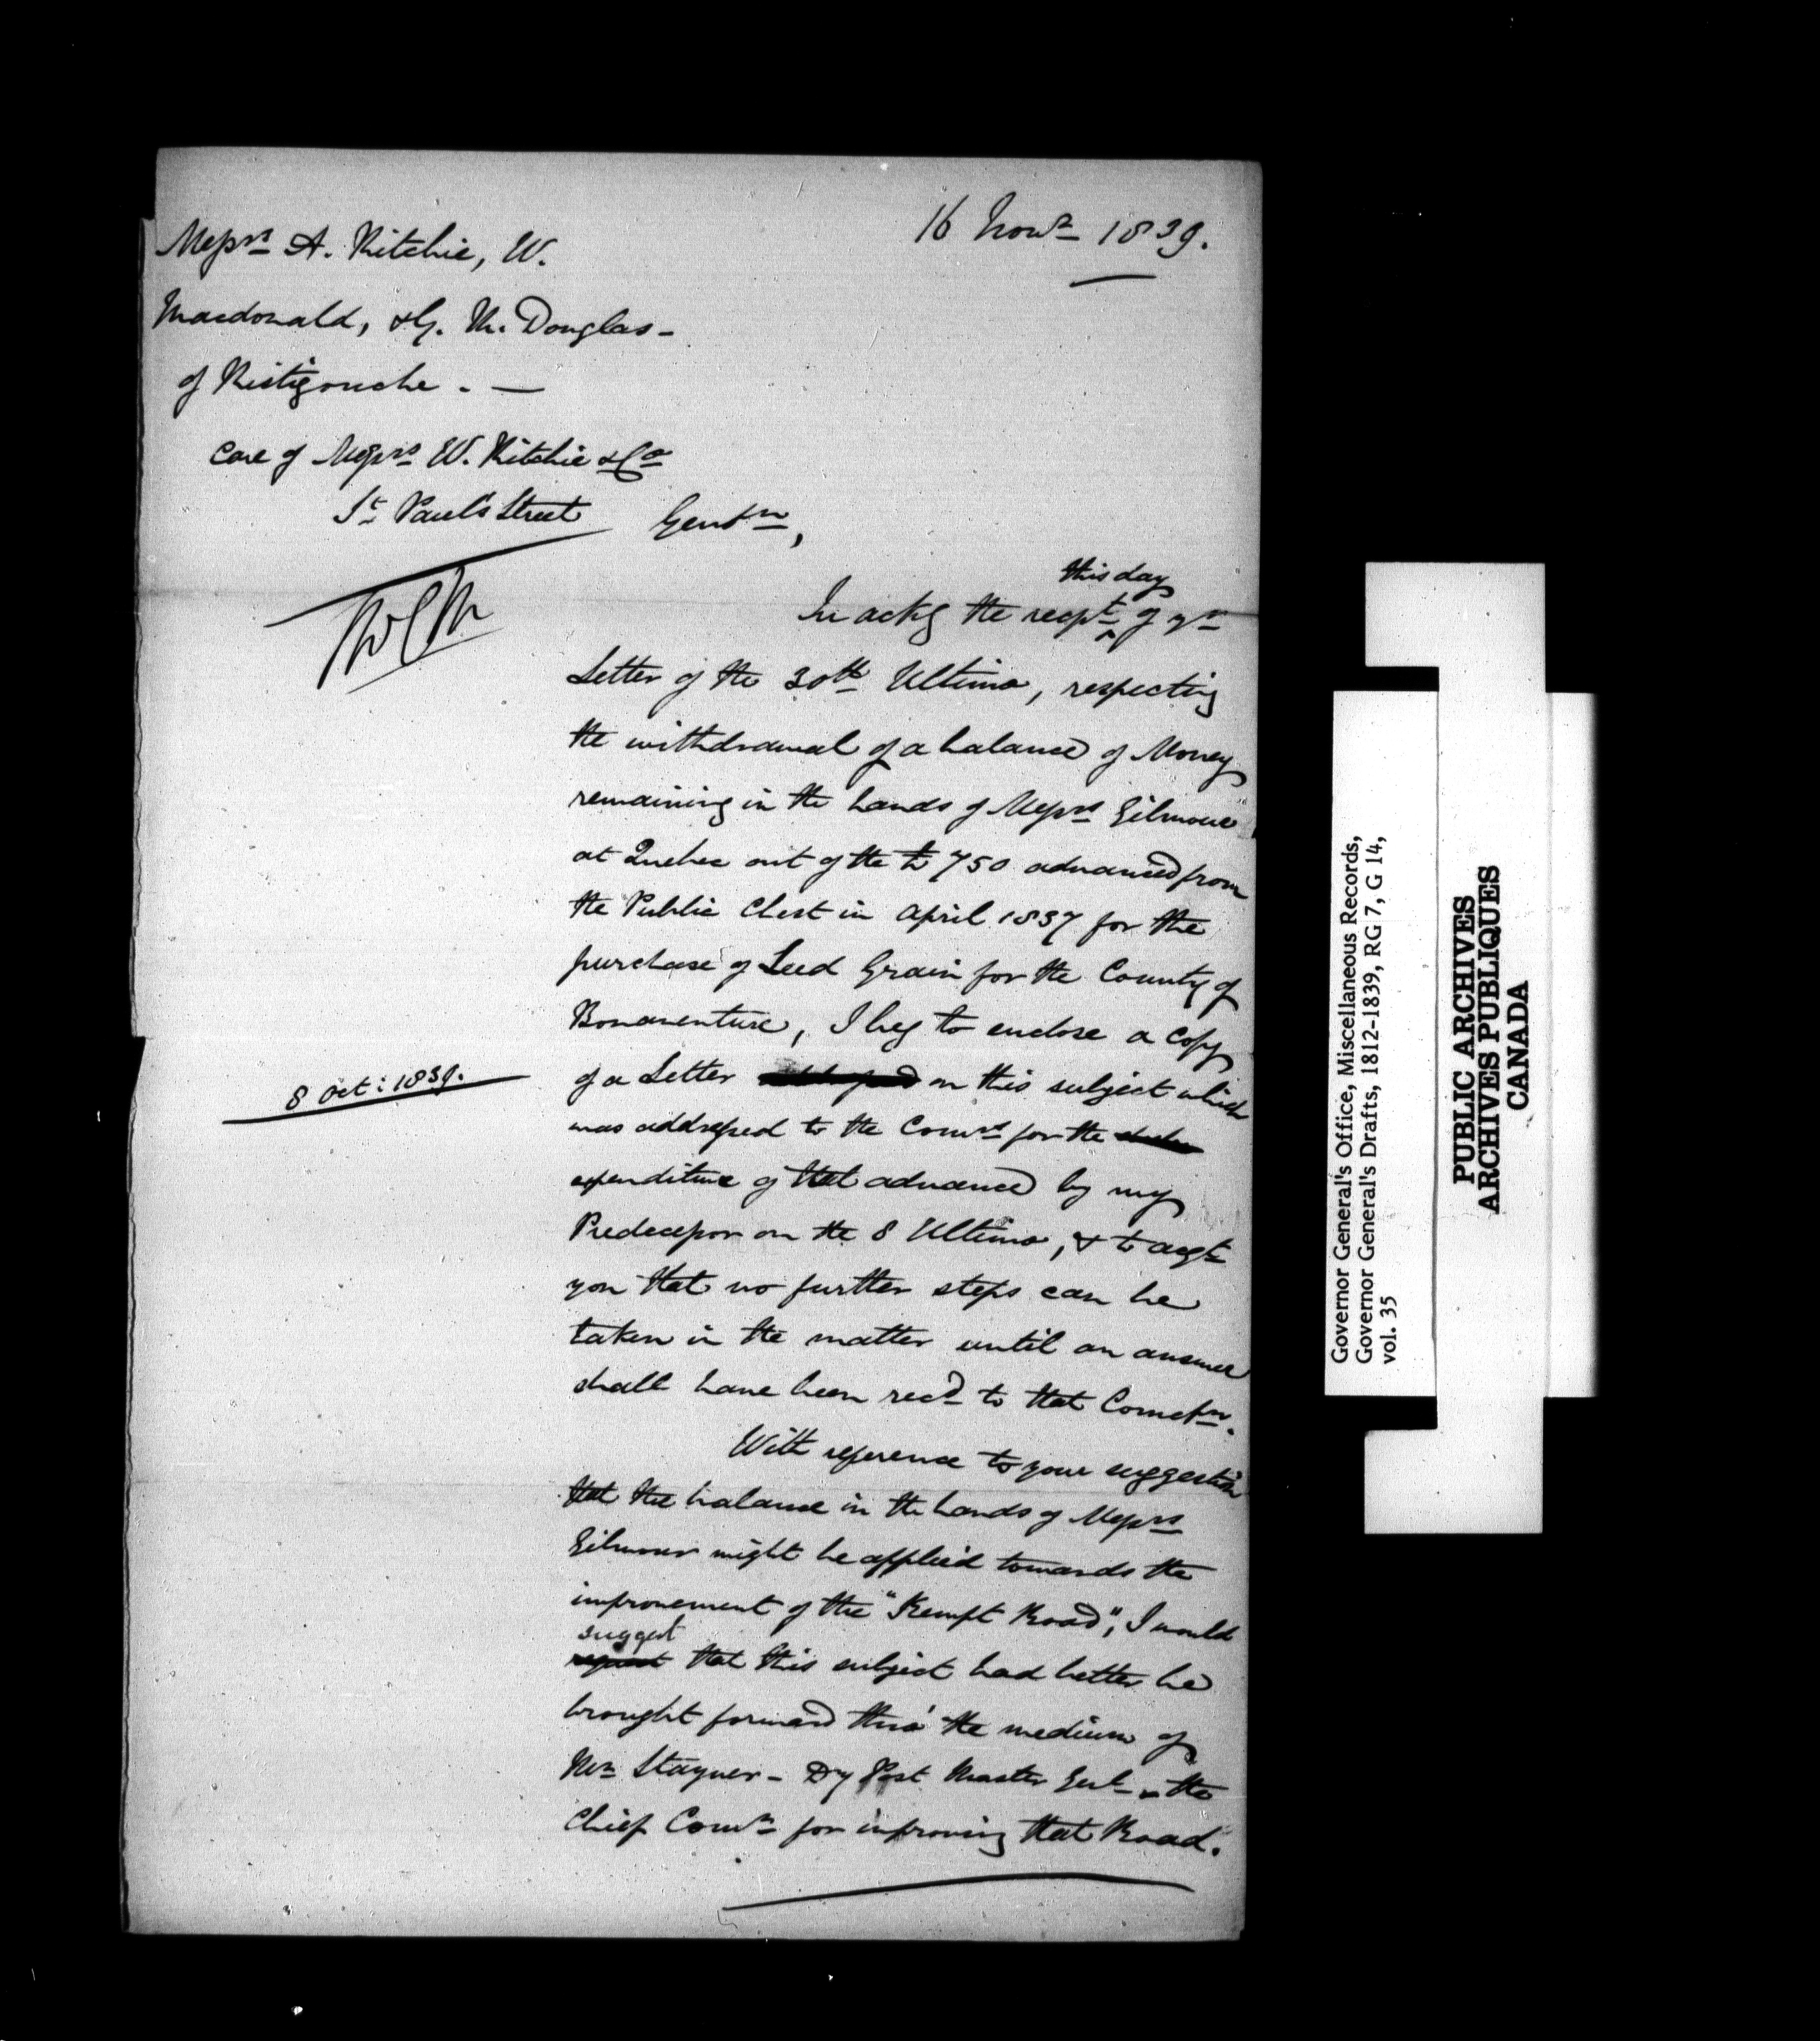 16 Novr 1839.
Messrs A. Ritchie, W.
Macdonald, & G. M. Douglas -
of Ristigouche. —
Care of Messrs W. Ritchie & Co
St Paul's Street
Gentn,
this day
In ackg the recpt of yr
Letter of the 30th Ultimo, respecting
the withdrawal of a balance of Money
remaining in the hands of Messrs Gilmour
at Quebec out of the £750 advanced from
the Public Chest in April 1837 for the
purchase of Seed Grain for the County of
Bonaventure, I beg to enclose a copy
8 Oct: 1839.
of a Letter on this subject which
was addressed to the Comrs for the
expenditure of that advance by my
Predecessor on the 8 Ultimo, & to acqt
you that no further steps can be
taken in the matter until an answer
shall have been recd to that Comctn.
With reference to your suggestion
that the balance in the hands of Messrs
Gilmour might be applied towards the
improvement of the "Kempt Road", I would
suggest
request that this subject had better be
brought forward thro' the medium of
Mr Stayner - Dy Post Master Genl - the
Chief Comr for improving that Road.
Governor General's Office, Miscellaneous Records,
Governor General's Drafts, 1812-1839, RG 7, G 14,
vol. 35
PUBLIC ARCHIVES
ARCHIVES PUBLIQUES
CANADA